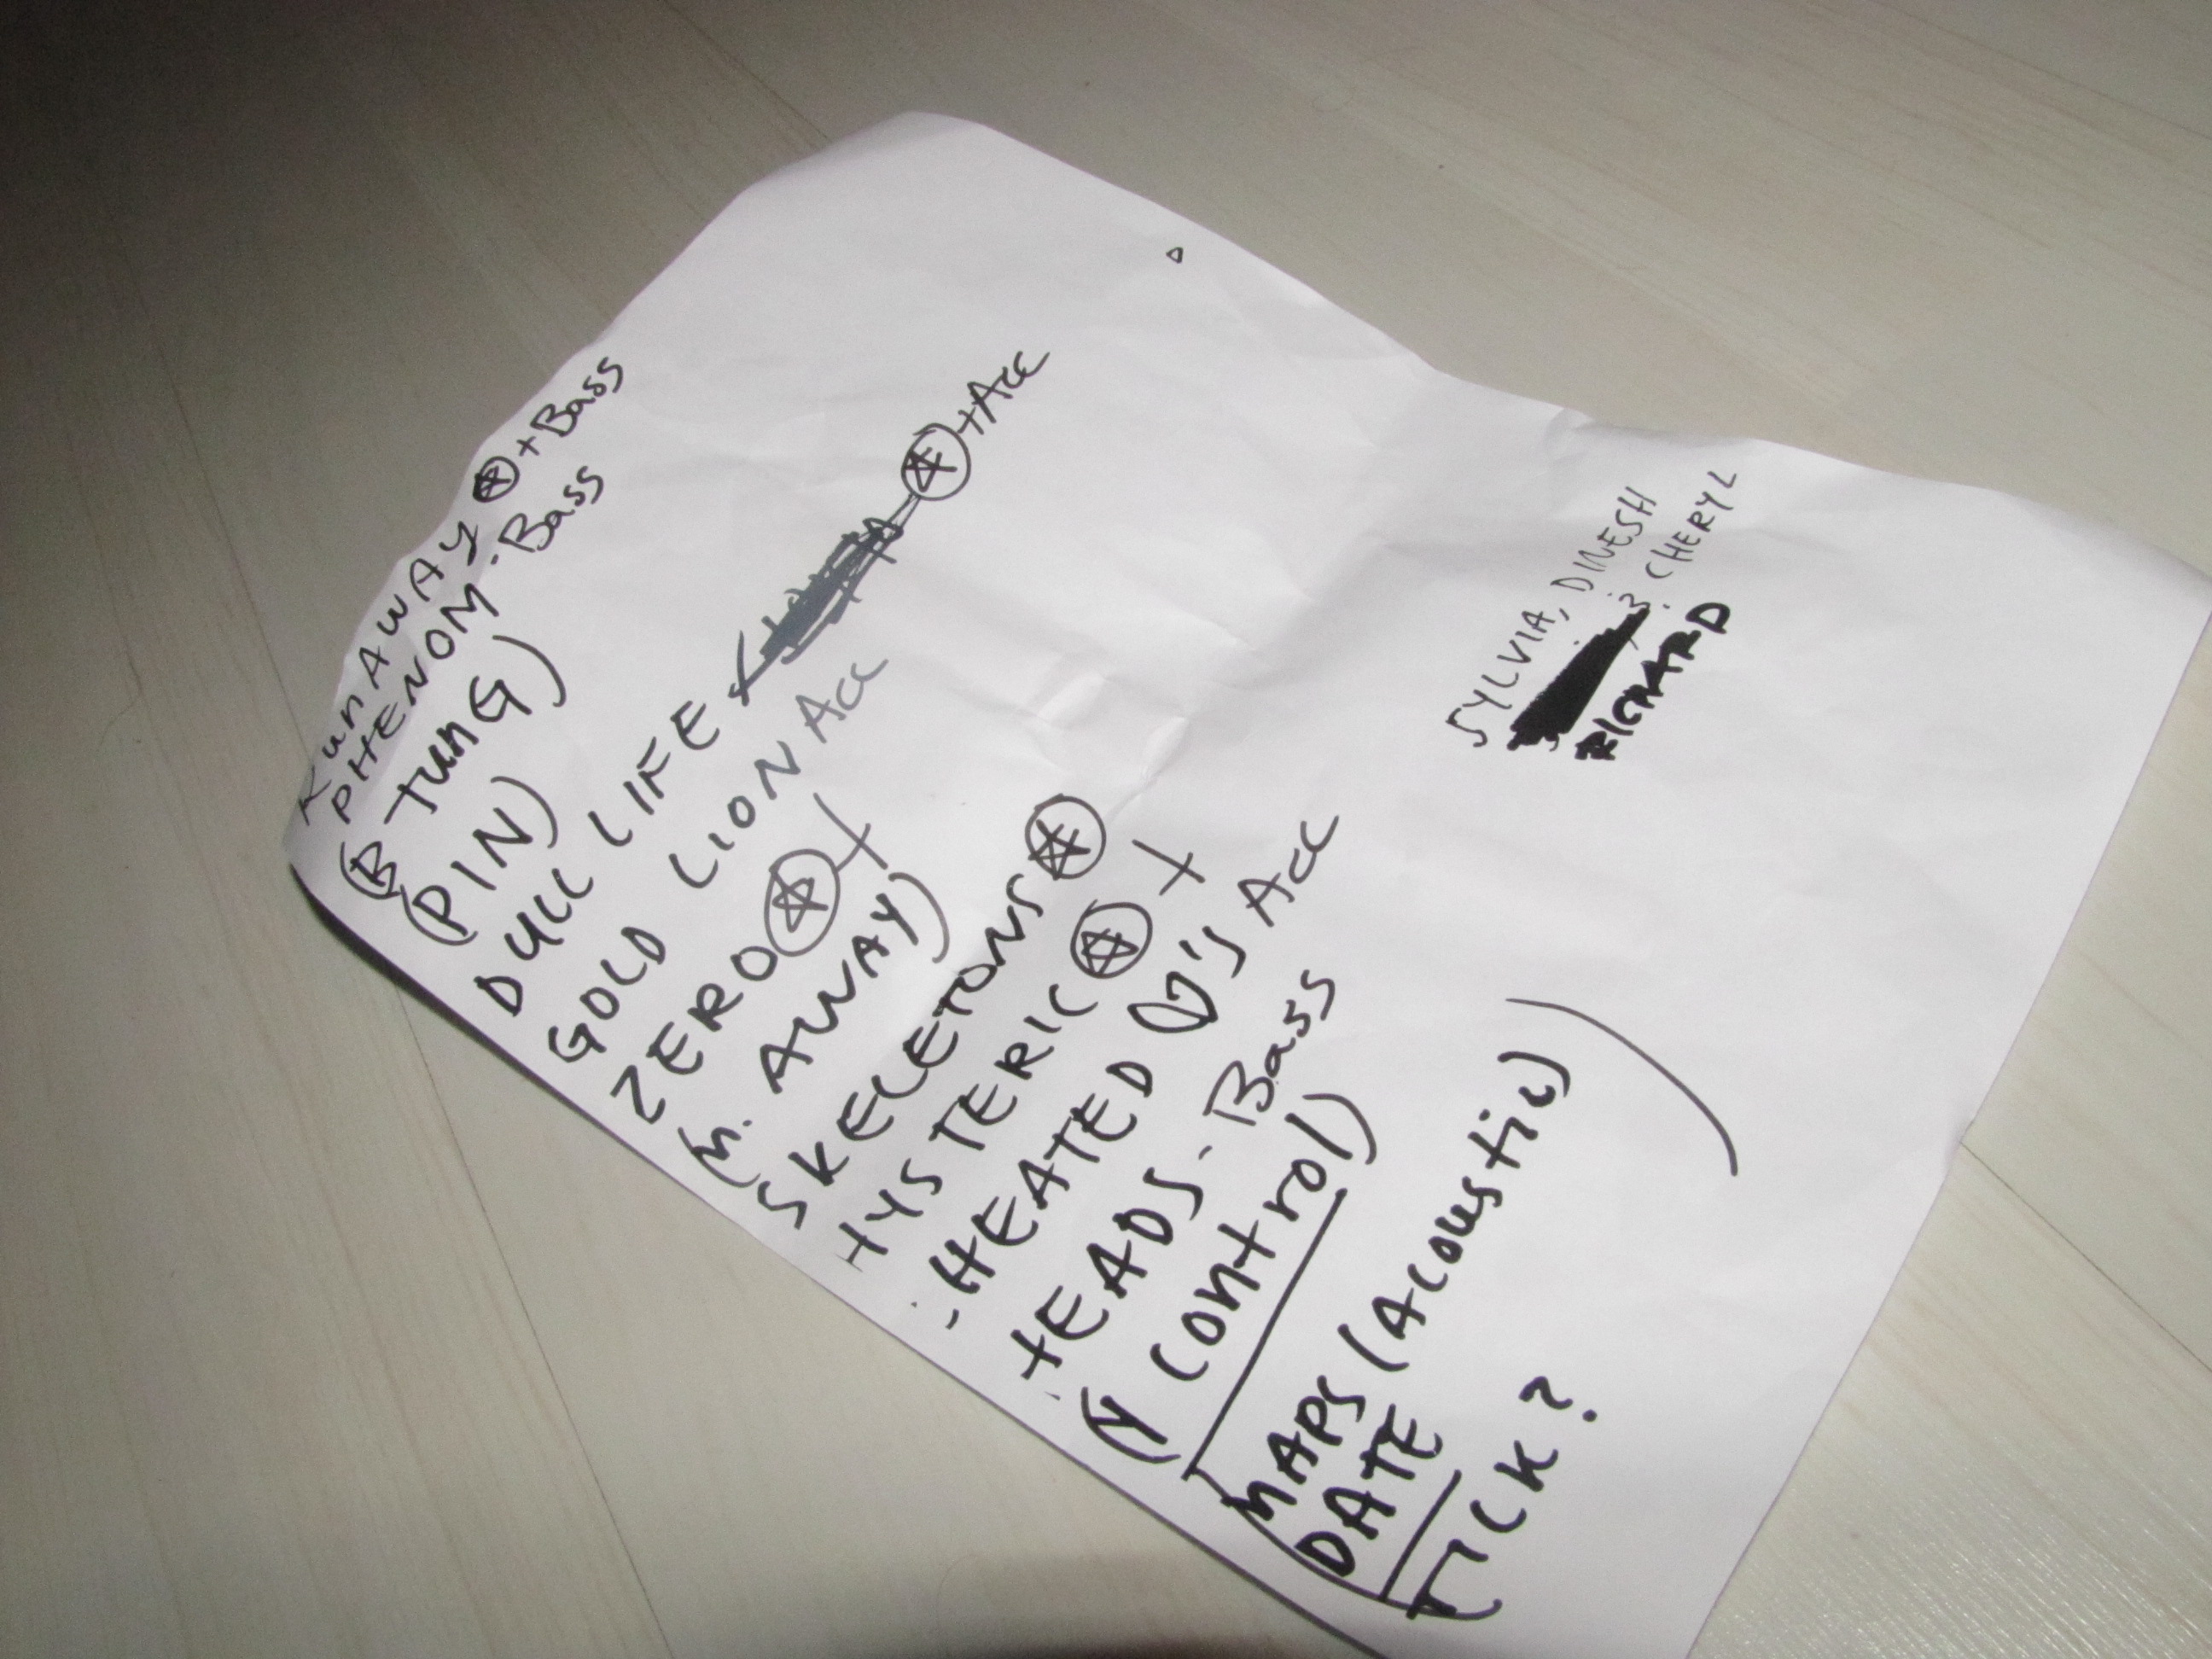 RunAWAY +Bass
PHENOM-Bass
(B TunG)
(PIN)
DULL LIFE +Acc
GOLD LION Acc
ZERO +
(M. AWAY)
SKELETONS
HYSTERIC +
HEATED Acc
HEADS-Bass
(Y Control)
MAPS (Acoustic)
DATE
TICK?
SYLVIA, DINESH
CHERYL
RICHARD